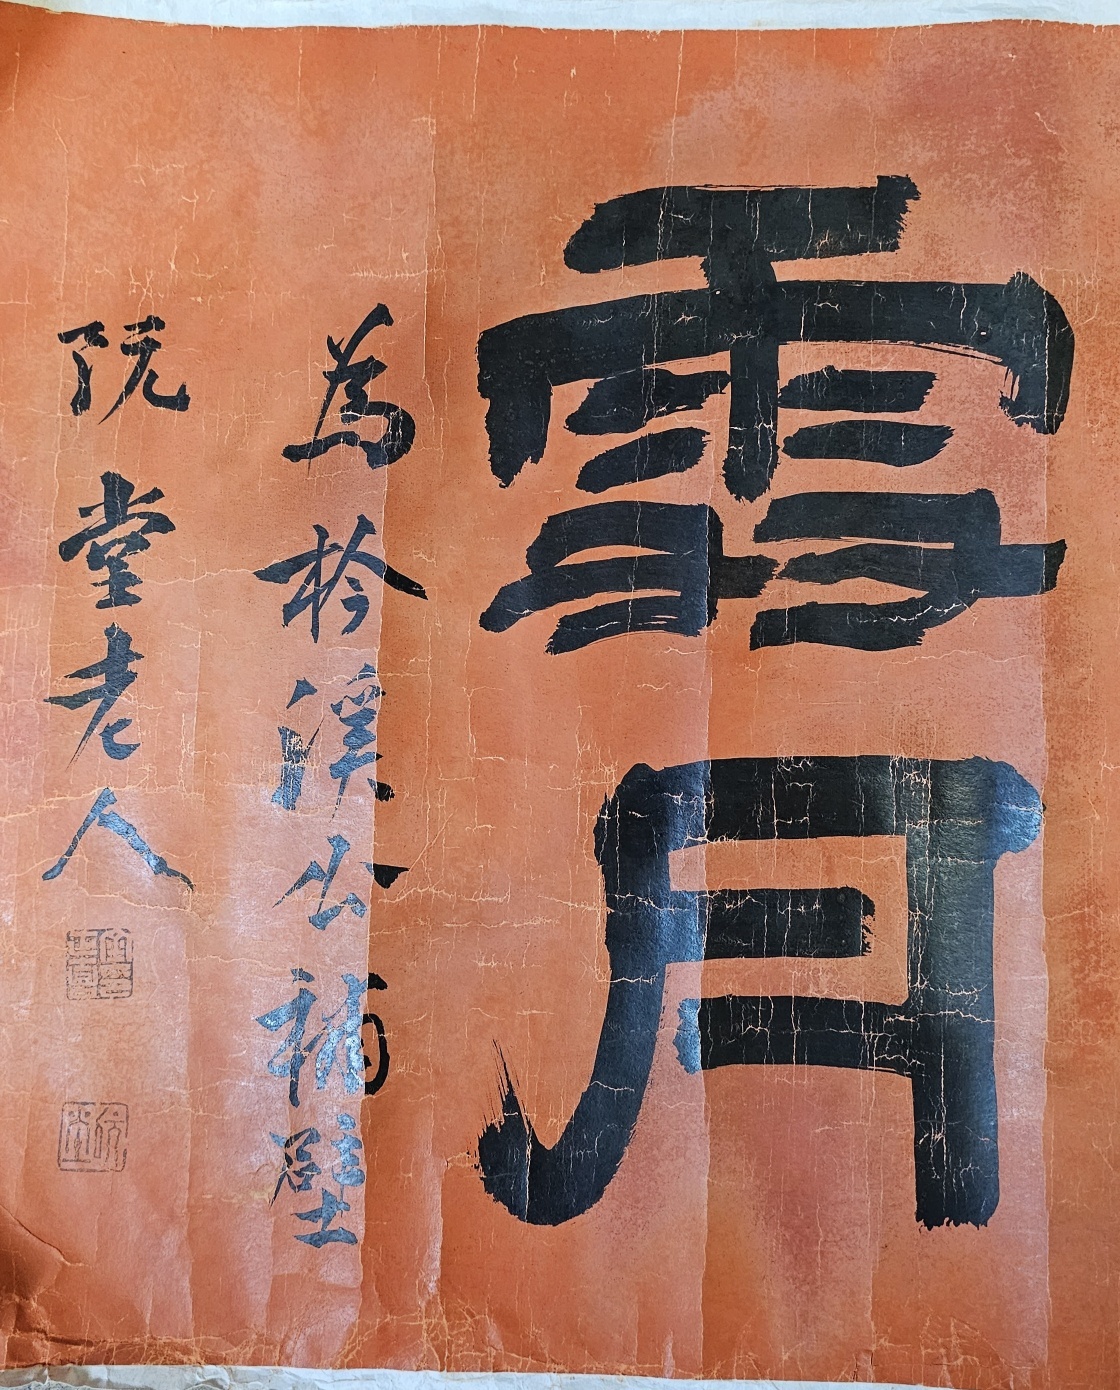 雪月
為枔溪公補壁
阮堂老人